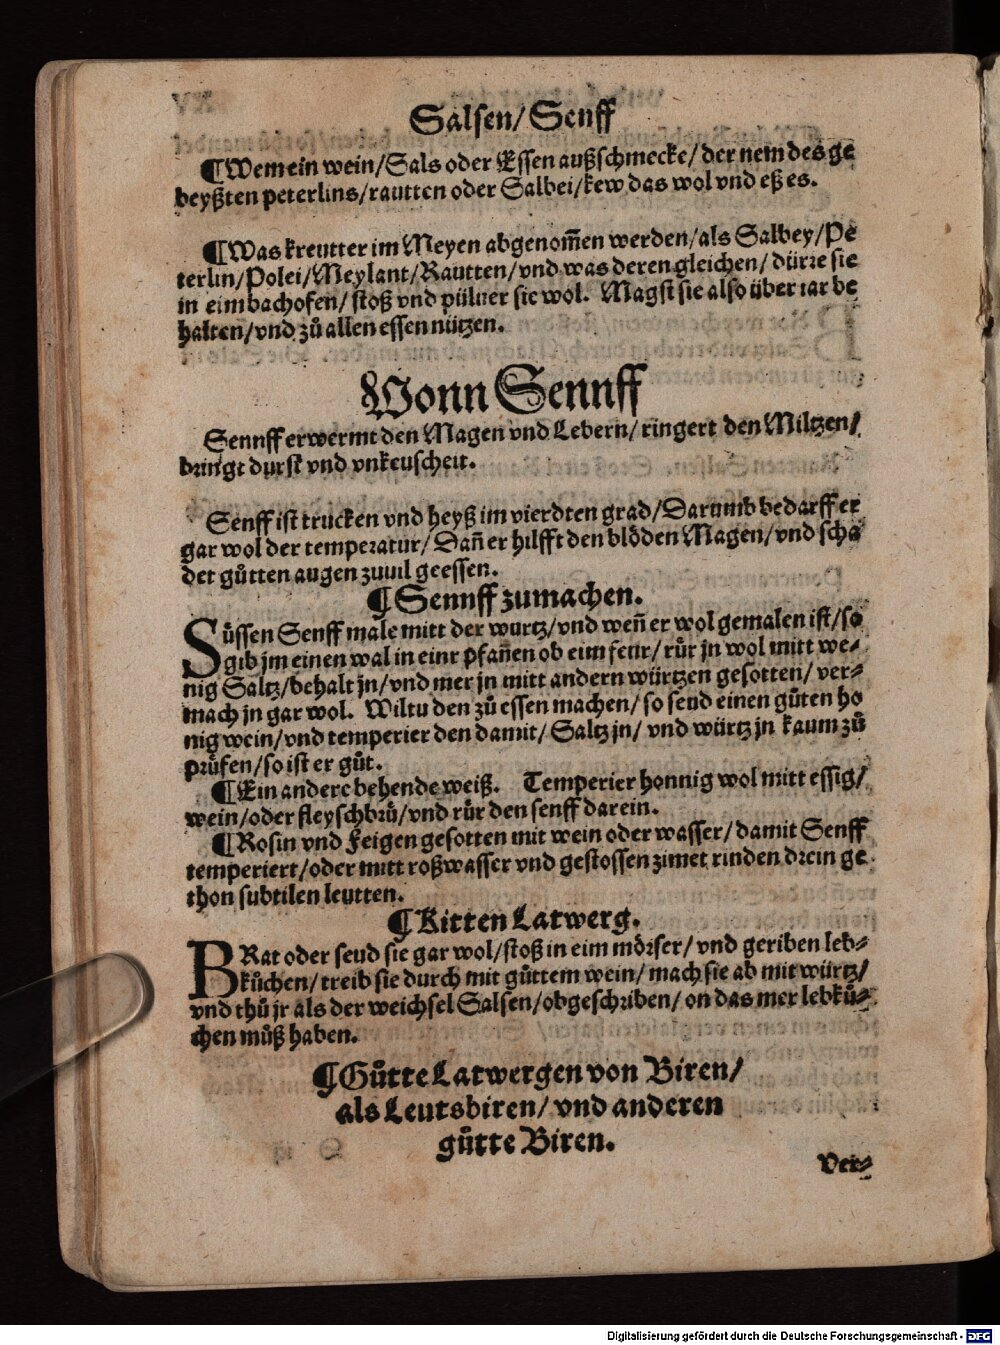 Salsen/ Senff
¶Wem ein wein/Sals oder Essen außschmecke/der nem des ge
beyßten peterlins/rautten oder Salbei/kew das wol vnd eß es.
¶Was kreutter im Meyen abgenom̃en werden/als Salbey/Pe
terlin/Polei/Meylant/Rautten/vnd was deren gleichen/ dürre sie
in eim bachofen/ stoß vnd pülver sie wol. Magst sie also über iar be
halten/vnd zů allen essen nützen.
Vonn Sennff
Sennff erwermt den Magen vnd Lebern/ ringert den Miltzen/
bringt durst vnd vnkeuscheit.
Senff ist trucken vnd heyß im vierdten grad/Darumb bedarff er
gar wol der temperatur/ Dañ er hilfft den blöden Magen/vnd scha
det gůtten augen zuuil geessen.
¶Sennff zumachen.
Süssen Senff male mitt der wurtz/vnd weñ er wol gemalen ist/so
gib jm einen wal in einr pfañen ob eim feur/ rür jn wol mitt we⸗
nig Saltz/behalt jn/vnd mer jn mitt andern würtzen gesotten/ ver⸗
mach jn gar wol. Wiltu den zů essen machen/ so seud einen gůten ho
nig wein/vnd temperier den damit/ Saltz jn/ vnd würtz jn kaum zů
prüfen/so ist er gůt.
¶Ein andere behende weiß. Temperier honnig wol mitt essig/
wein/oder fleyschbrů/vnd rür den senff darein.
¶Rosin vnd Feigen gesotten mit wein oder wasser/damit Senff
temperiert/oder mitt roßwasser vnd gestossen zimet rinden drein ge
thon subtilen leutten.
¶Kitten Latwerg.
BRat oder seud sie gar wol/stoß in eim mörser/ vnd geriben leb⸗
kůchen/ treib sie durch mit gůttem wein/ mach sie ab mit würtz/
vnd thů jr als der weichsel Salsen/obgeschriben/ on das mer lebků⸗
chen můß haben.
¶Gůtte Latwergen von Biren/
als Leutsbiren/ vnd anderen
gůtte Biren.
Ver⸗
Digitalisierung gefördert durch die Deutsche Forschungsgemeinschaft - DFG